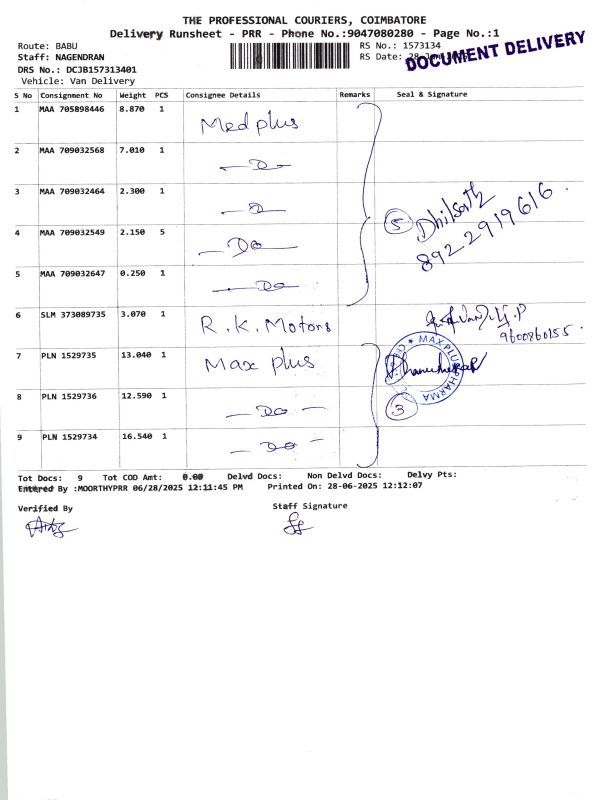 THE PROFESSIONAL COURIERS, COIMBATORE
Delivery Runsheet - PRR - Phone No.:9047080280 - Page No.:1
Route: BABU RS No.: 1573134
Staff: NAGENDRAN RS Date: 28
DOCUMENT DELIVERY
DRS No.: DCJB157313401
Vehicle: Van Delivery
S No Consignment No Weight PCS Consignee Details Remarks Seal & Signature
1 MAA 705898446 8.870 1 Medplus
2 MAA 709032568 7.010 1 - Do -
3 MAA 709032464 2.300 1 - Do -
4 MAA 709032549 2.150 5 - Do -
5 MAA 709032647 0.250 1 - Do -
5 Dhilsath
8922919616
6 SLM 373089735 3.070 1 R.K. Motors
9600860155
7 PLN 1529735 13.040 1 Max plus
MAX PLUS PHARMA
8 PLN 1529736 12.590 1 - Do - 3
9 PLN 1529734 16.540 1 - Do -
Tot Docs: 9 Tot COD Amt: 0.00 Delvd Docs: Non Delvd Docs: Delvy Pts:
Entered By :MOORTHYPRR 06/28/2025 12:11:45 PM Printed On: 28-06-2025 12:12:07
Verified By Staff Signature